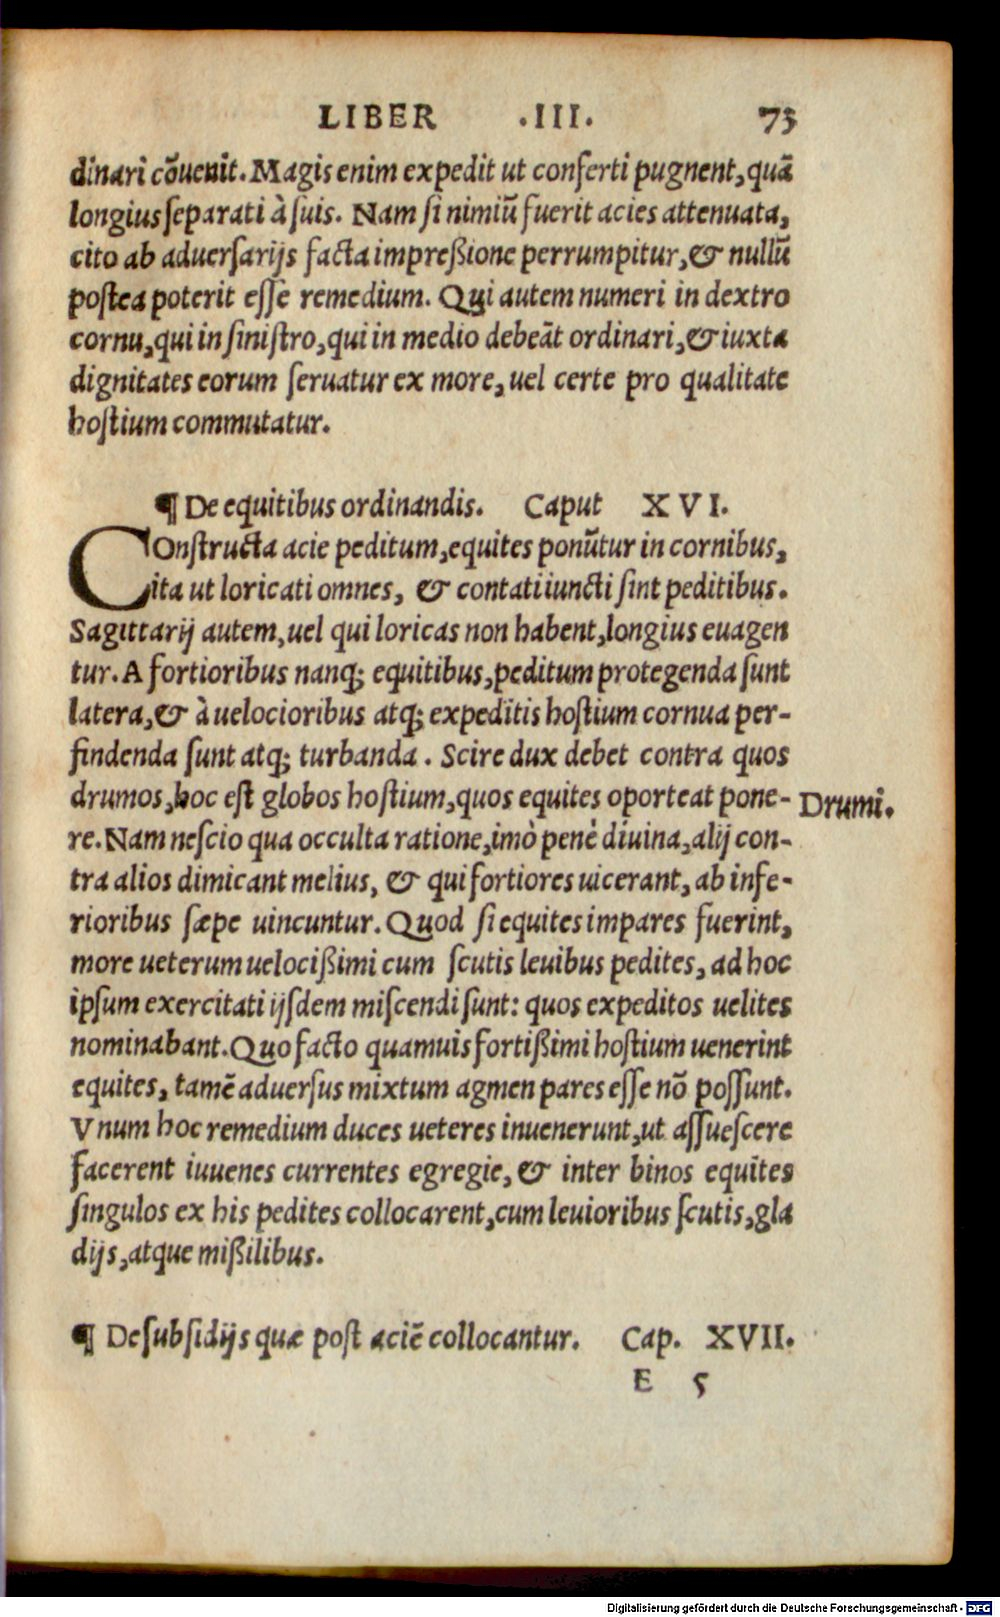 LIBER .III. 73
dinari cõuenit. Magis enim expedit ut conferti pugnent, quã
longius separati à suis. Nam si nimiũ fuerit acies attenuata,
cito ab aduersarijs facta impreßione perrumpitur, & nullũ
postea poterit esse remedium. Qui autem numeri in dextro
cornu, qui in sinistro, qui in medio debeãt ordinari, & iuxta
dignitates eorum seruatur ex more, uel certe pro qualitate
hostium commutatur.
¶ De equitibus ordinandis. Caput XVI.
COnstructa acie peditum, equites ponũtur in cornibus,
ita ut loricati omnes, & contati iuncti sint peditibus.
Sagittarij autem, uel qui loricas non habent, longius euagen
tur. A fortioribus nanq; equitibus, peditum protegenda sunt
latera, & à uelocioribus atq; expeditis hostium cornua per-
findenda sunt atq; turbanda. Scire dux debet contra quos
drumos, hoc est globos hostium, quos equites oporteat pone-
Drumi.
re. Nam nescio qua occulta ratione, imò penè diuina, alij con-
tra alios dimicant melius, & qui fortiores uicerant, ab infe-
rioribus sæpe uincuntur. Quod si equites impares fuerint,
more ueterum uelocißimi cum scutis leuibus pedites, ad hoc
ipsum exercitati ijsdem miscendi sunt: quos expeditos uelites
nominabant. Quo facto quamuis fortißimi hostium uenerint
equites, tamẽ aduersus mixtum agmen pares esse nõ possunt.
Vnum hoc remedium duces ueteres inuenerunt, ut assuescere
facerent iuuenes currentes egregie, & inter binos equites
singulos ex his pedites collocarent, cum leuioribus scutis, gla
dijs, atque mißilibus.
¶ De subsidijs quæ post aciẽ collocantur. Cap. XVII.
E 5
Digitalisierung gefördert durch die Deutsche Forschungsgemeinschaft - DFG